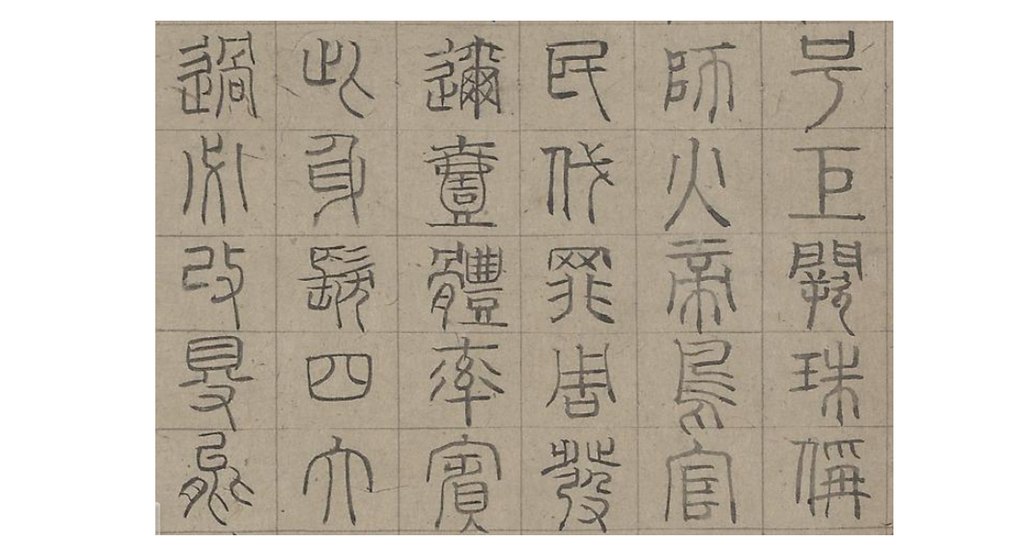 号巨闕珠稱
師火帝鳥官
民伐罪周發
邇壹體率賓
此身髮四大
過必改得能